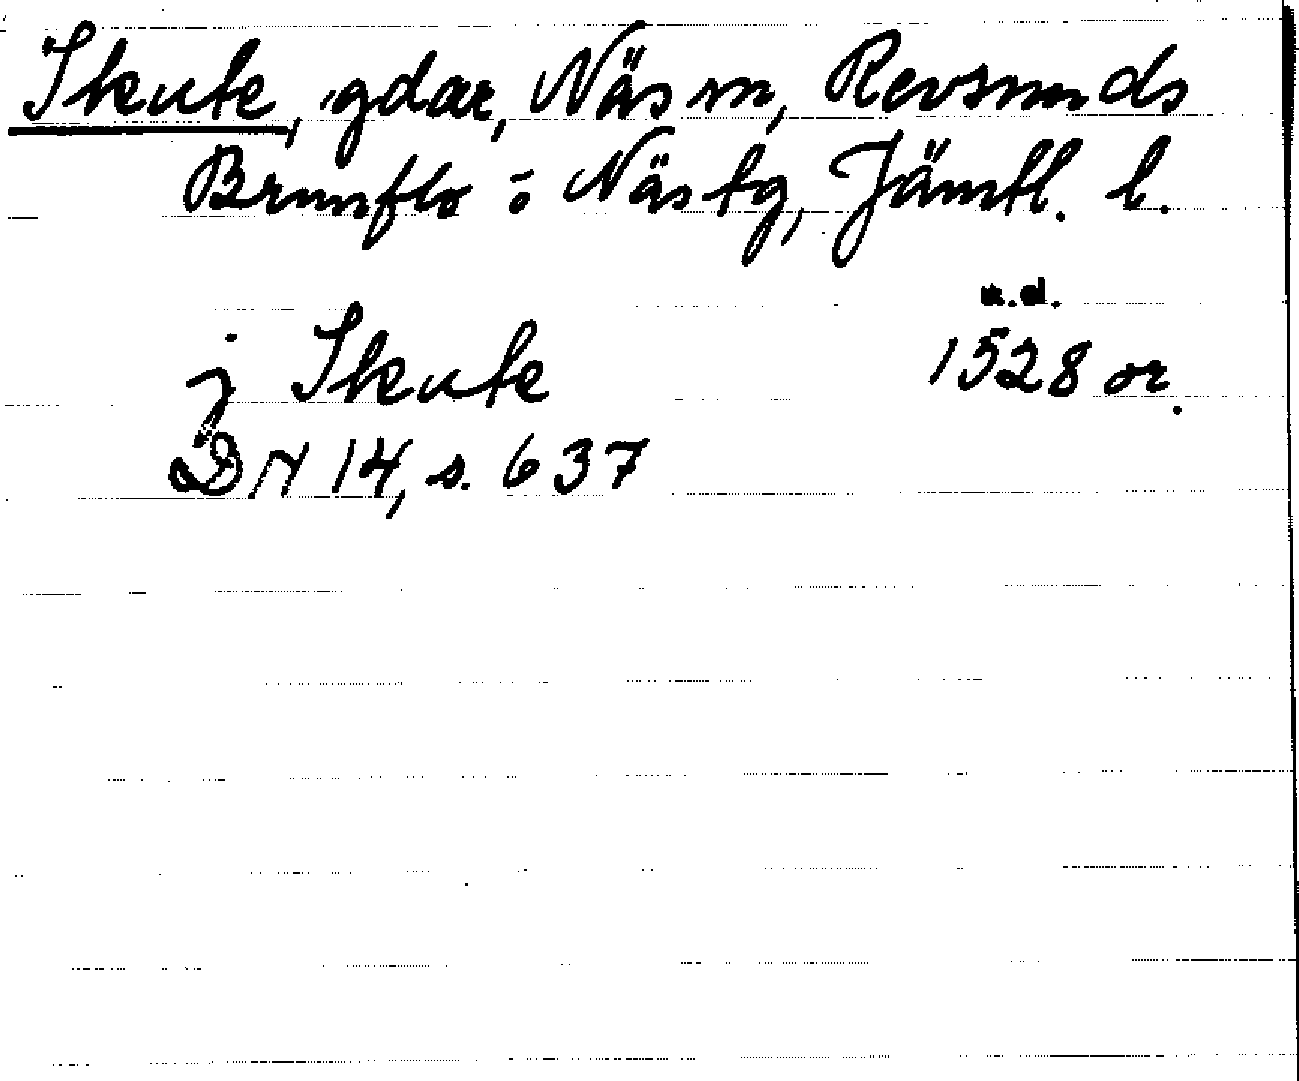 Skute, gdar, Näs sn, Revsunds
Brunflo o Näs tg, Jämtl. l.
u.d.
j Skute 1528 or.
DN 14, s. 637